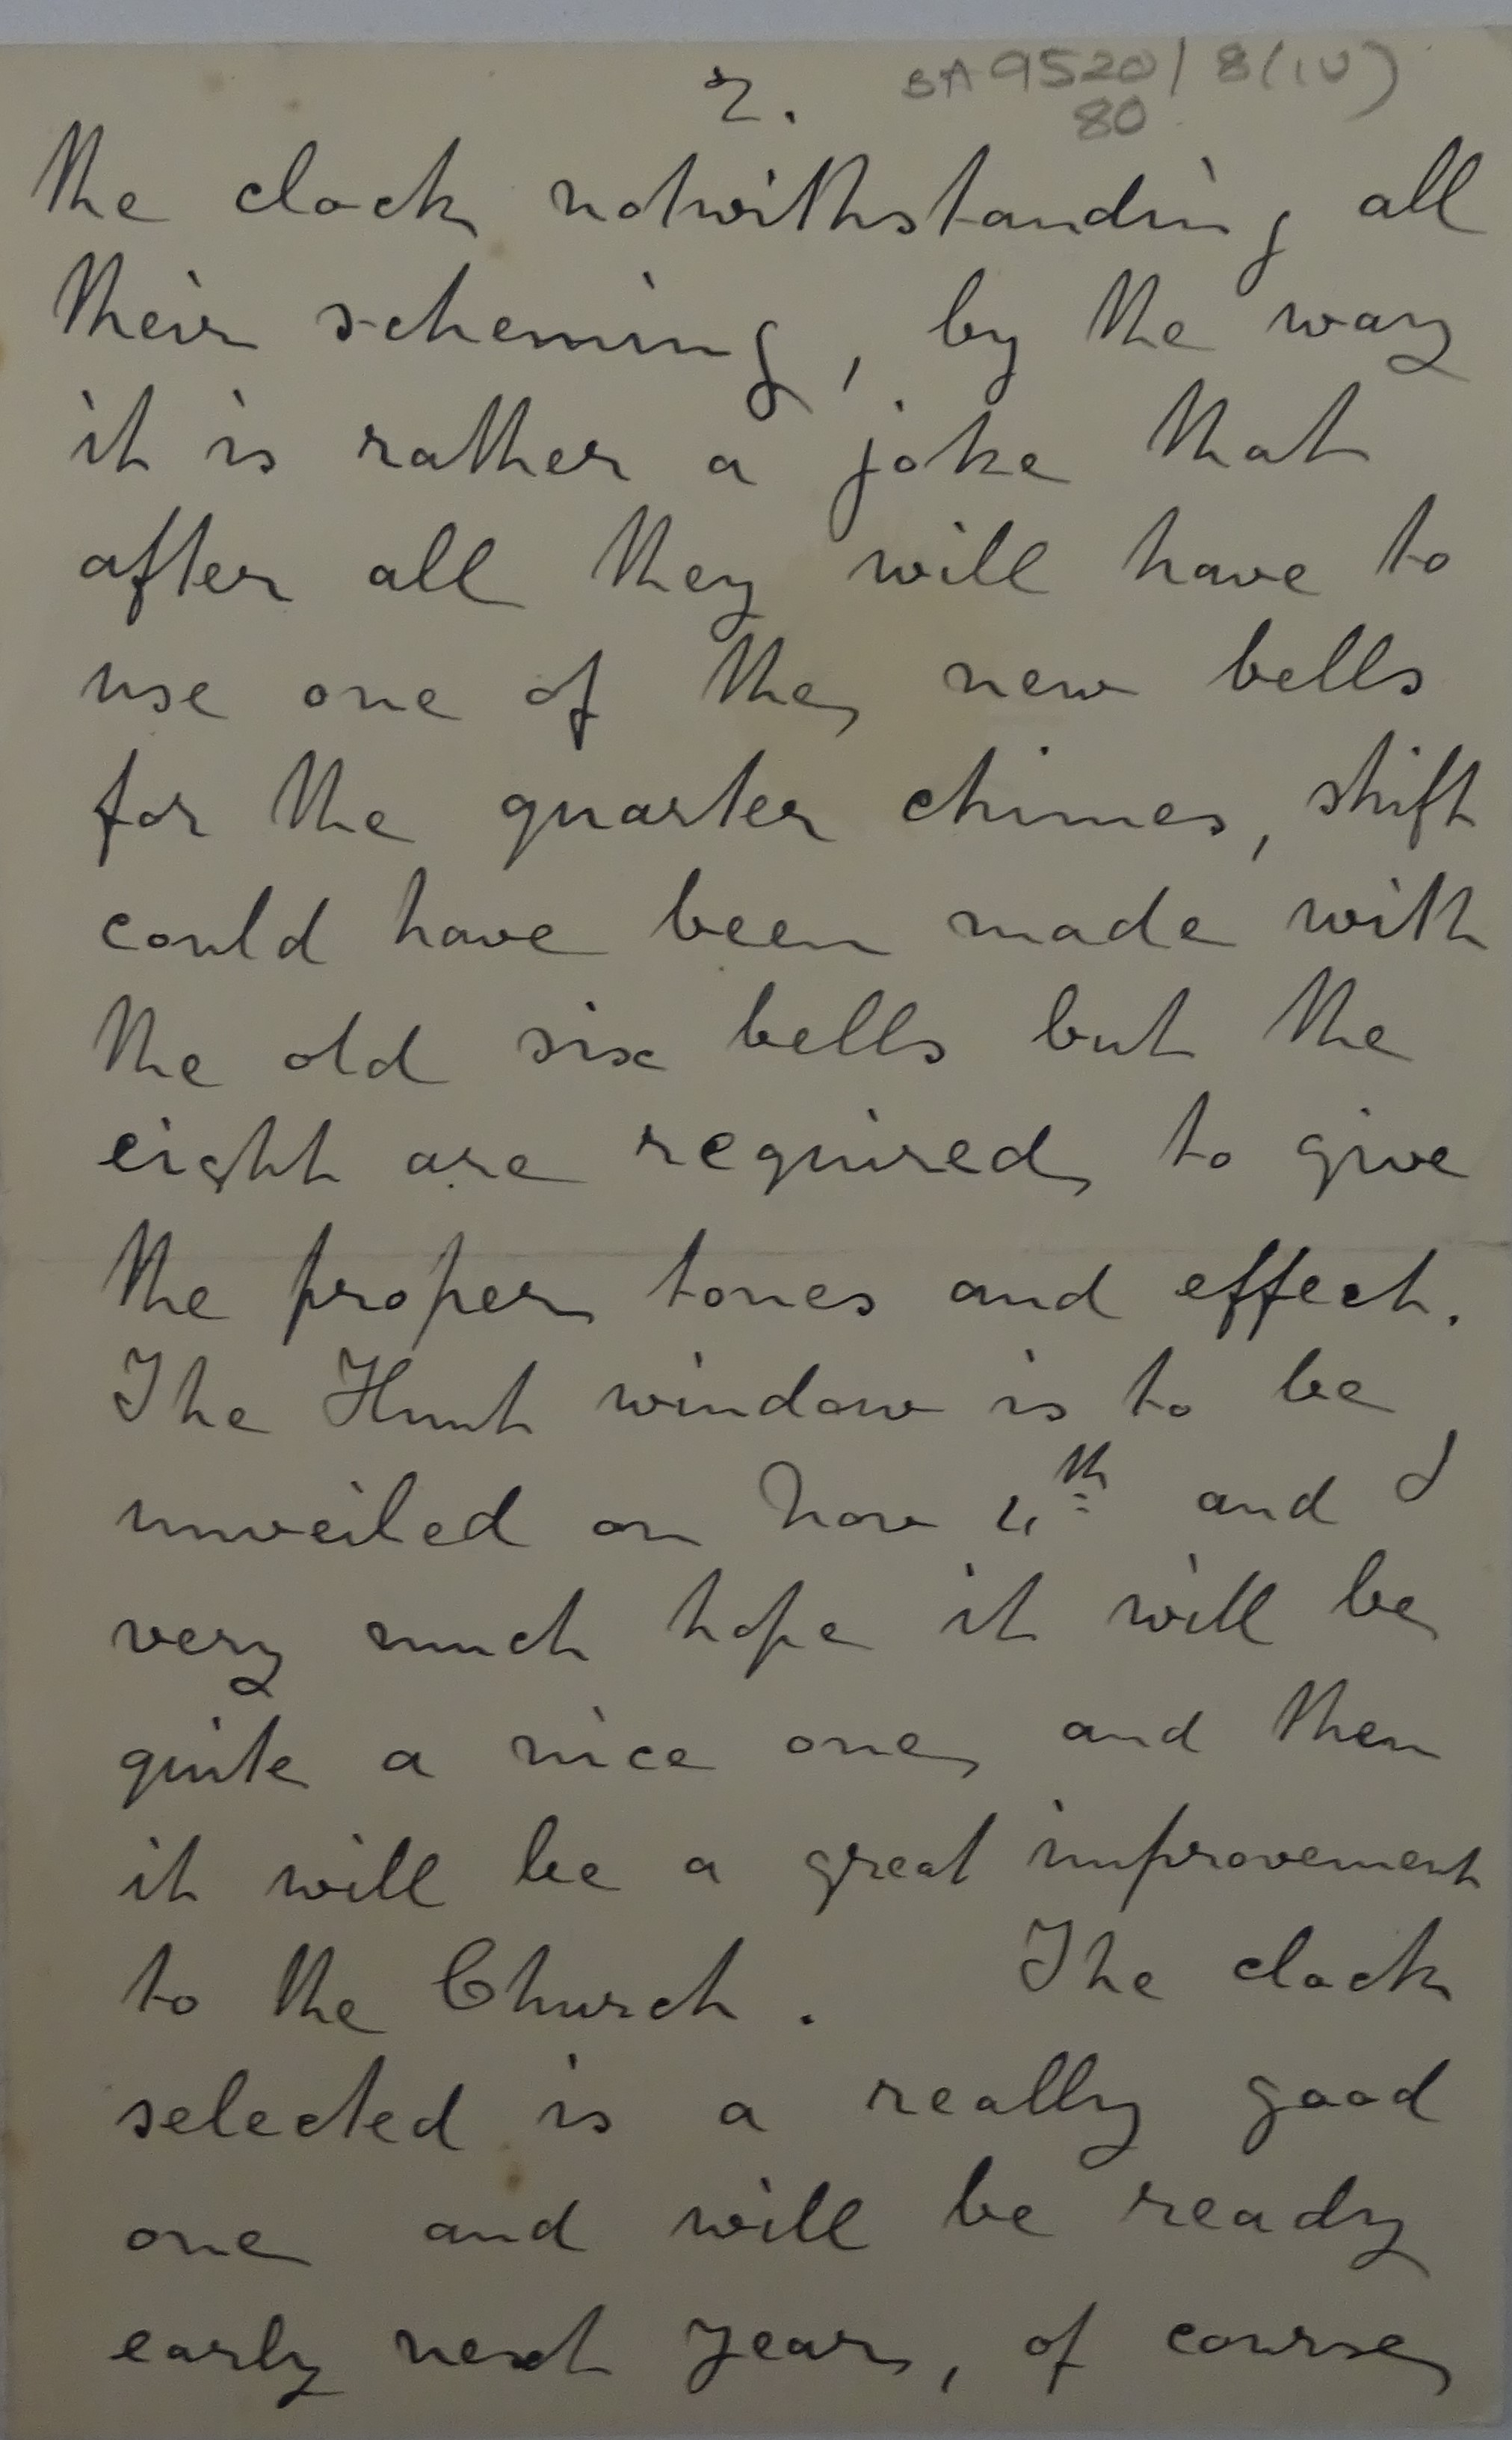 2.
BA 9520/8(iv)
80
the clock notwithstanding all
their scheming, by the way
it is rather a joke that
after all they will have to
use one of the new bells
for the quarter chimes, shift
could have been made with
the old six bells but the
eight are required to give
the proper tones and effect.
The Hunt window is to be
unveiled on Nov 4th and I
very much hope it will be
quite a nice one and then
it will be a great improvement
to the Church. The clock
selected is a really good
one and will be ready
early next year, of course